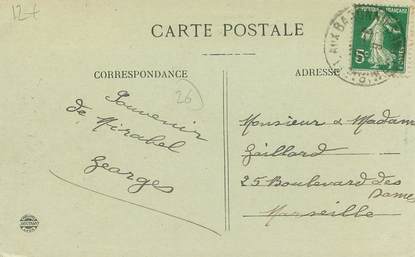 12+
CARTE POSTALE
CORRESPONDANCE
ADRESSE
26
Souvenir
de Mirabel
Georges
Monsieur & Madame
Gaillard
25 Boulevard des
Dames
Marseille
5c